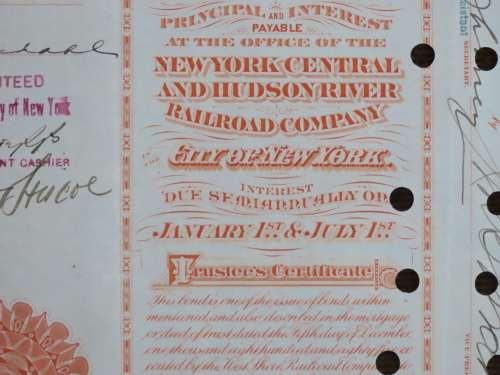 PRINCIPAL AND INTEREST
PAYABLE
AT THE OFFICE OF THE
NEW YORK CENTRAL
AND HUDSON RIVER
RAILROAD COMPANY
IN THE
CITY OF NEW YORK.
INTEREST
DUE SEMIANNUALLY ON
JANUARY 1ST & JULY 1ST
Trustee's Certificate
This bond is one of the issue of bonds within
mentioned, and also described in the mortgage
or deed of trust dated the Fifth day of December
one thousand eight hundred and eighty five
executed by the West Shore Railroad Company
NTEED
y of New York
NT CASHIER
SECRETARY